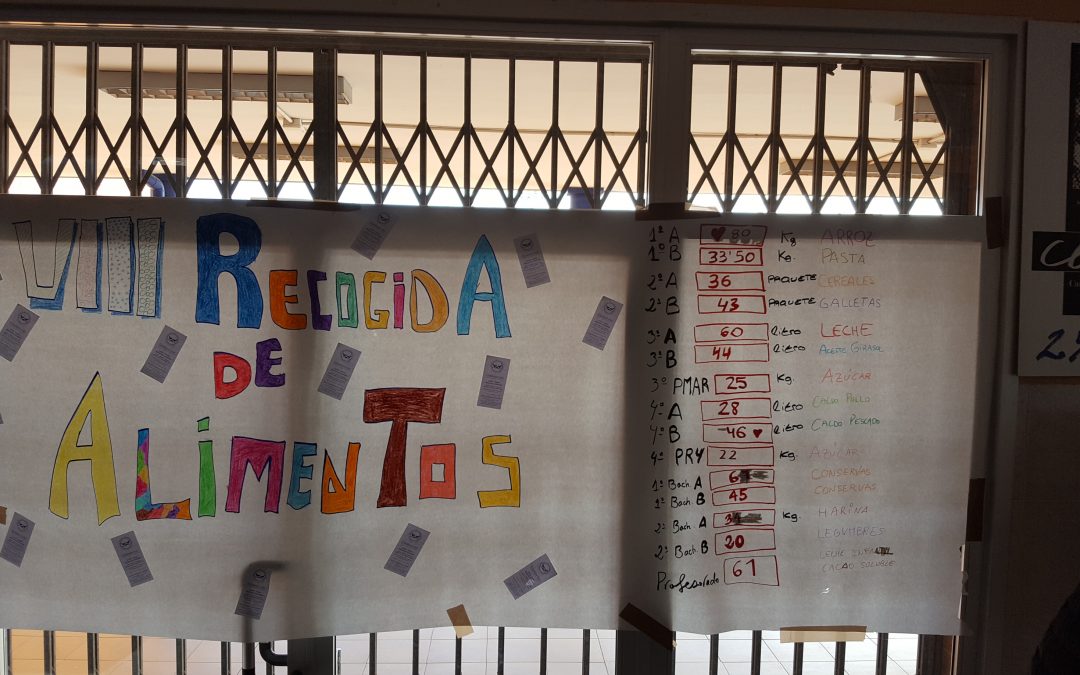 VIII RECOGIDA
DE
ALIMENTOS
1º A ♥ 80 Kg ARROZ
1º B 33'50 Kg. PASTA
2º A 36 PAQUETE CEREALES
2º B 43 PAQUETE GALLETAS
3º A 60 litro LECHE
3º B 44 litro ACEITE GIRASOL
3º PMAR 25 Kg. AZÚCAR
4º A 28 litro CALDO POLLO
4º B 46 ♥ litro CALDO PESCADO
4º PRY 22 Kg AZÚCAR
1º Bach. A CONSERVAS
1º Bach. B 45 CONSERVAS
2º Bach. A Kg. HARINA
2º Bach. B 20 LEGUMBRES
Profesorado 61 LECHE
CACAO SOLUBLE